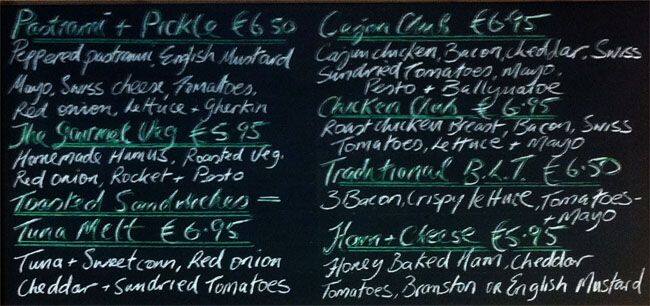 Pastrami + Pickle €6.50
Peppered pastrami, English Mustard
Mayo, Swiss cheese, Tomatoes,
Red onion, Lettuce + Gherkin
The Gourmet Veg €5.95
Homemade Humus, Roasted Veg.
Red Onion, Rocket + Pesto
Toasted Sandwiches =
Tuna Melt €6.95
Tuna + Sweetcorn, Red onion
Cheddar + Sundried Tomatoes
Cajun Club €6.95
Cajun chicken, Bacon, cheddar, Swiss
Sundried Tomatoes, Mayo,
Pesto + Ballymaloe
Chicken Club €6.95
Roast chicken Breast, Bacon, Swiss
Tomatoes, Lettuce + Mayo
Traditional B.L.T. €6.50
3 Bacon, Crispy lettuce, Tomatoes-
+ Mayo
Ham + Cheese €5.95
Honey Baked Ham, Cheddar
Tomatoes, Branston or English Mustard